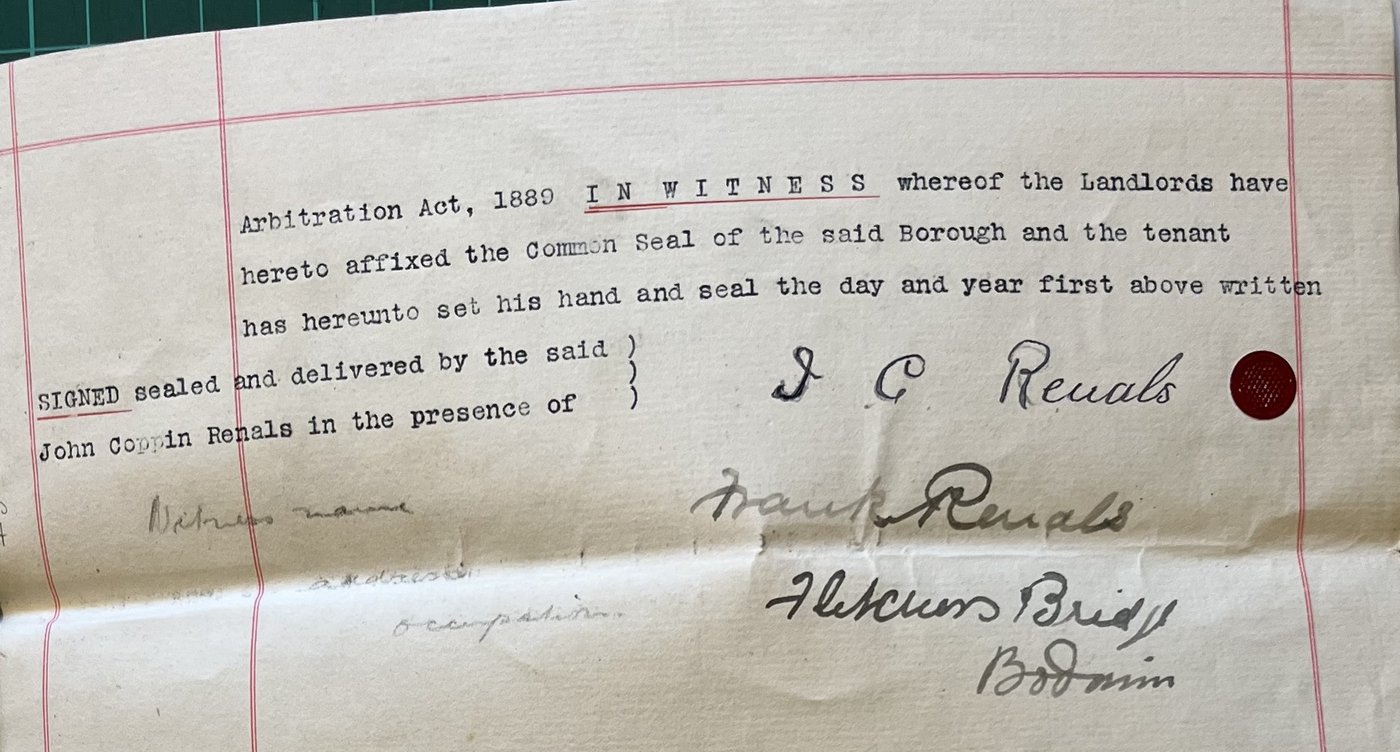 Arbitration Act, 1889 I N W I T N E S S whereof the Landlords have
hereto affixed the Common Seal of the said Borough and the tenant
has hereunto set his hand and seal the day and year first above written
SIGNED sealed and delivered by the said )
)
John Coppin Renals in the presence of )
J C Renals
Witness name
Frank Renals
address
Fletchers Bridge
occupation
Bodmin